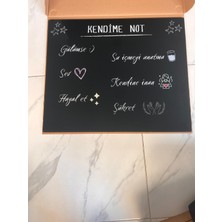 KENDİME NOT
Gülümse :)
Su içmeyi unutma
Sev
Kendine inan
Hayal et
Şükret